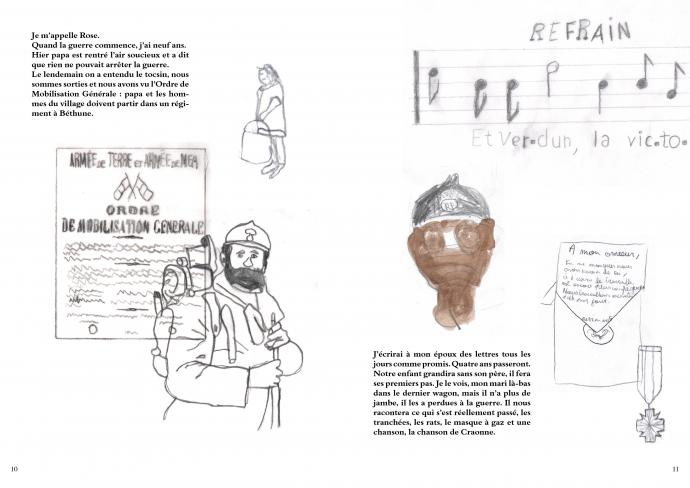 Je m'appelle Rose.
Quand la guerre commence, j'ai neuf ans.
Hier papa est rentré l'air soucieux et a dit
que rien ne pouvait arrêter la guerre.
Le lendemain on a entendu le tocsin, nous
sommes sorties et nous avons vu l'Ordre de
Mobilisation Générale : papa et les hom-
mes du village doivent partir dans un régi-
ment à Béthune.
ARMÉE DE TERRE ET ARMÉE DE MER
ORDRE
DE MOBILISATION GENERALE
10
REFRAIN
Et Ver-dun, la vic-to-
RF
A mon
J'écrirai à mon époux des lettres tous les
jours comme promis. Quatre ans passeront.
Notre enfant grandira sans son père, il fera
ses premiers pas. Je le vois, mon mari là-bas
dans le dernier wagon, mais il n'a plus de
jambe, il les a perdues à la guerre. Il nous
racontera ce qui s'est réellement passé, les
tranchées, les rats, le masque à gaz et une
chanson, la chanson de Craonne.
11